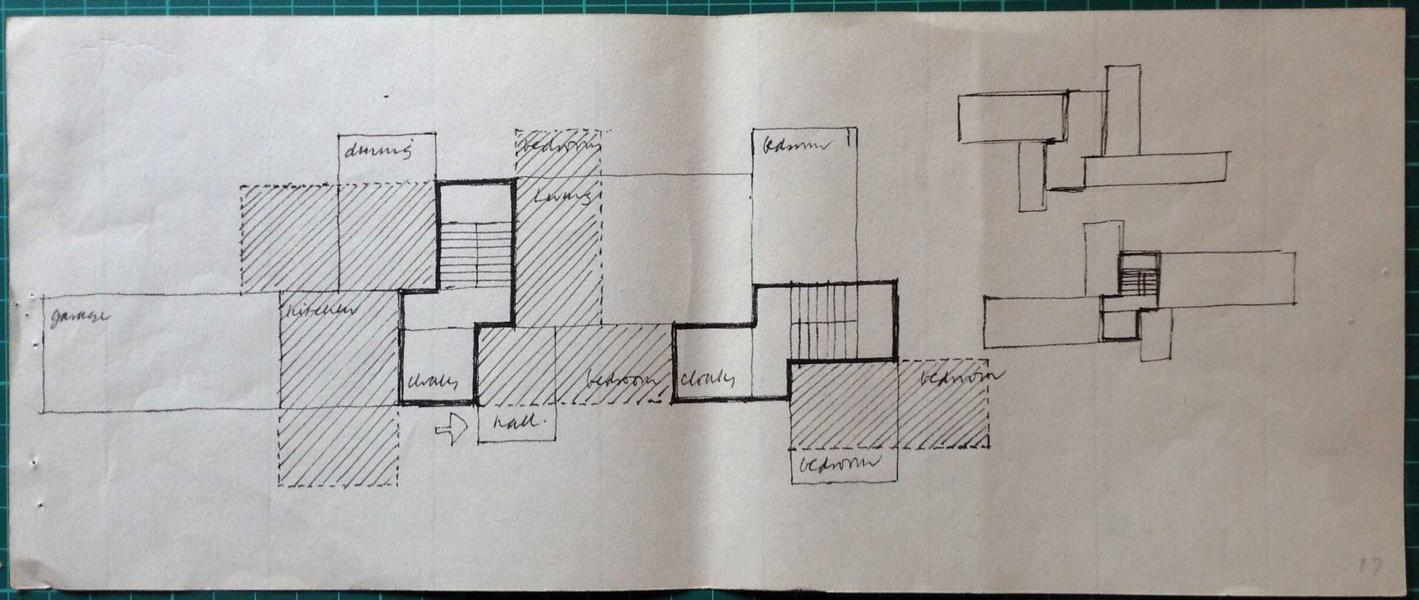 dining
bedroom
bedroom
Living
garage
kitchen
cloaks
bedroom
cloaks
bedroom
hall.
bedroom
17